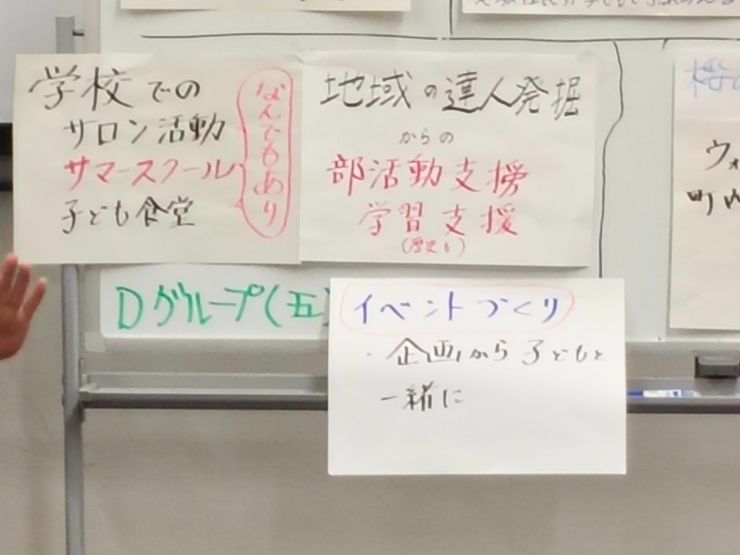 学校での
サロン活動
サマースクール
子ども食堂
なんでもあり
地域の達人発掘
からの
部活動支援
学習支援
(歴史も)
Dグループ(五)
イベントづくり
・企画から子どもと
一緒に
ウォ
町内